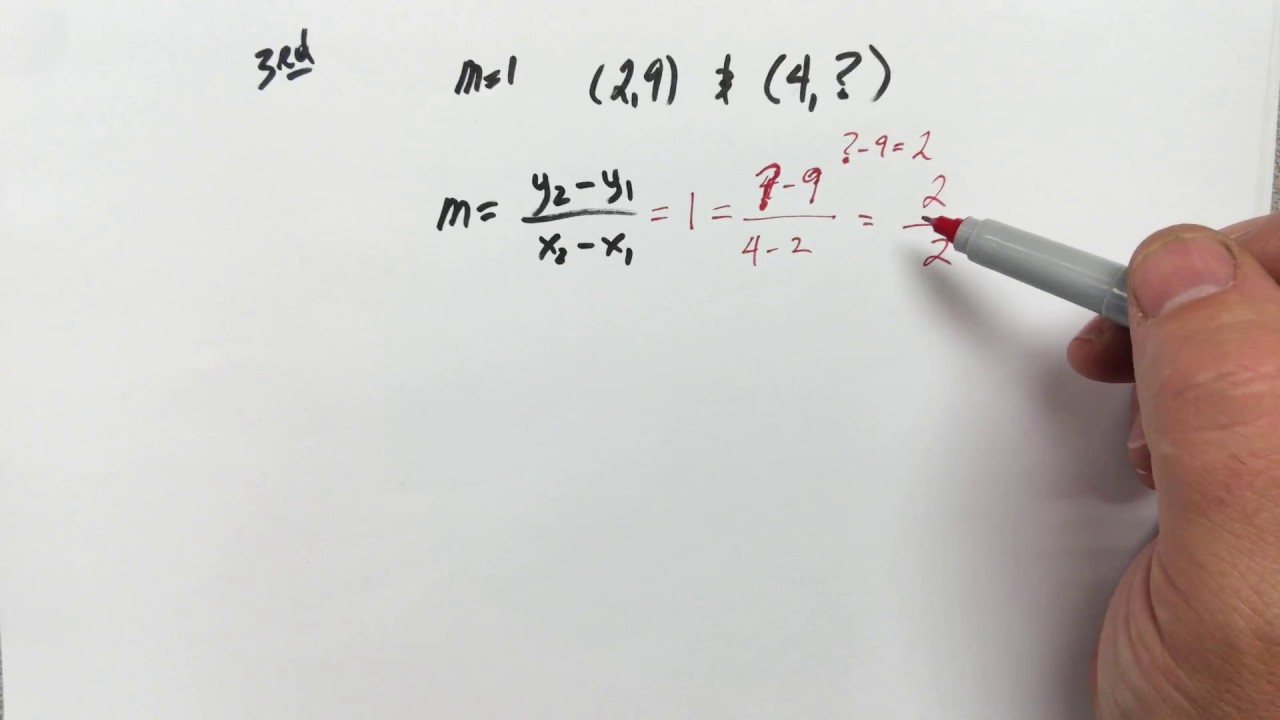 3rd
m=1 (2,9) & (4,?)
?-9=2
m= y2-y1 / x2-x1 = 1 = ?-9 / 4-2 = 2 / 2